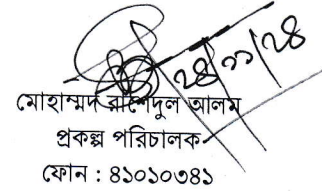 ২৪/১১/২৪
মোহাম্মদ রাশেদুল আলম
প্রকল্প পরিচালক
ফোন : ৪১০১০৩৪১